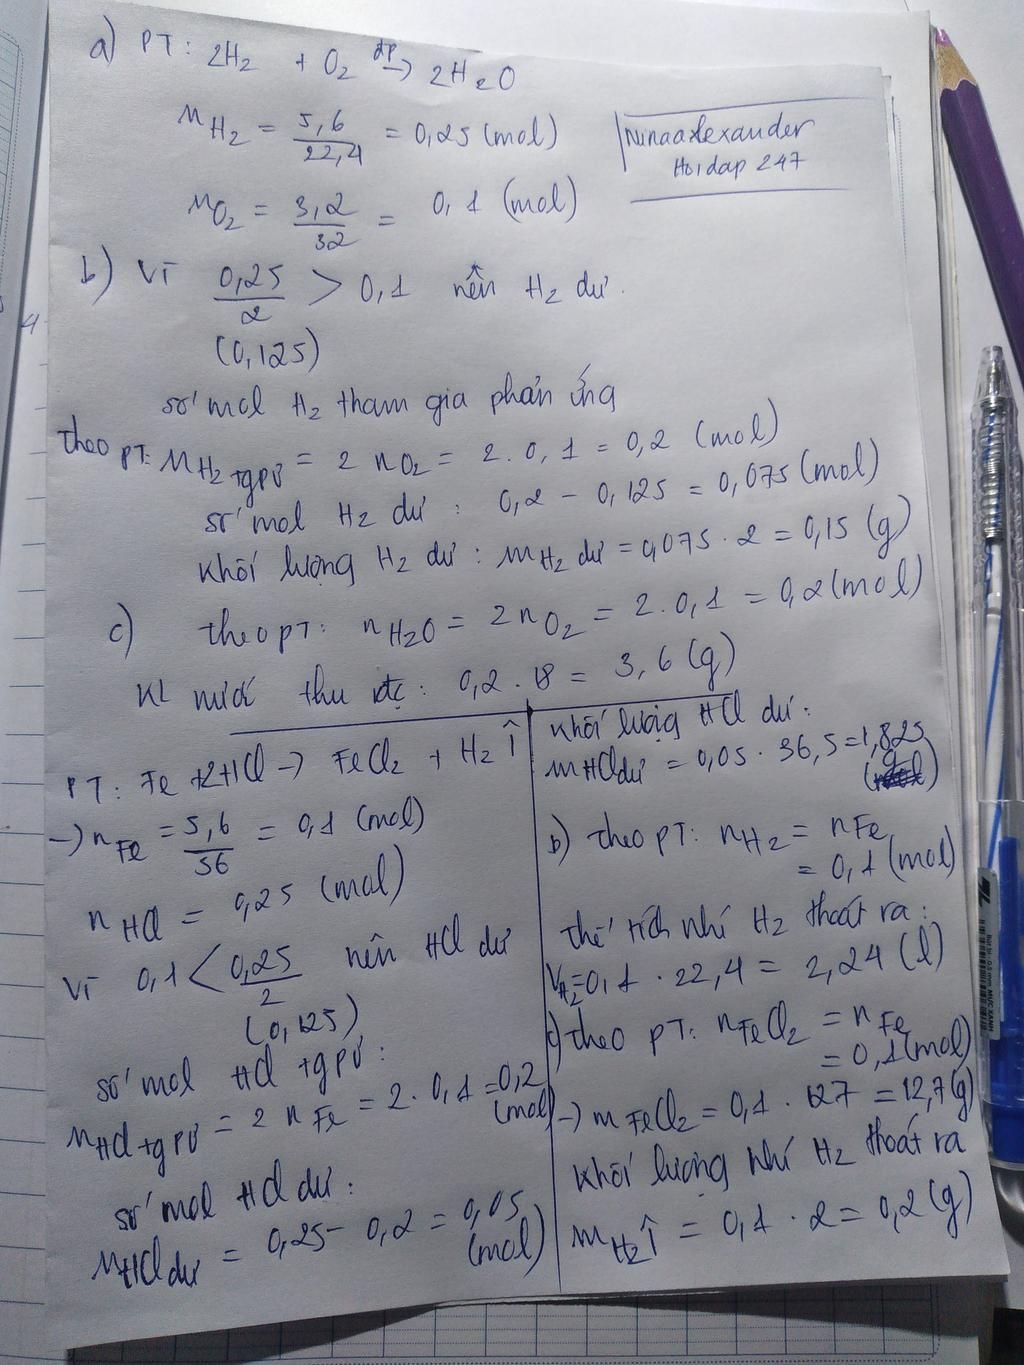 a) PT: 2H₂ + O₂ →(đp) 2H₂O
nH₂ = 5,6/22,4 = 0,25 (mol)
Ninaaxlexander
Hoidap 247
nO₂ = 3,2/32 = 0,1 (mol)
b) Vì 0,25/2 > 0,1 nên H₂ dư.
(0,125)
số mol H₂ tham gia phản ứng
Theo PT: nH₂ tgpứ = 2 nO₂ = 2.0,1 = 0,2 (mol)
số mol H₂ dư : 0,2 - 0,125 = 0,075 (mol)
Khối lượng H₂ dư : mH₂ dư = 0,075 . 2 = 0,15 (g)
c) theo pT: nH₂O = 2nO₂ = 2.0,1 = 0,2 (mol)
KL nước thu đc : 0,2 . 18 = 3,6 (g)
PT: Fe + 2HCl → FeCl₂ + H₂ ↑
→ nFe = 5,6/56 = 0,1 (mol)
nHCl = 0,25 (mol)
Vì 0,1 < 0,25/2 nên HCl dư
(0,125)
số mol HCl tgpứ :
nHCl tgpứ = 2 nFe = 2.0,1 = 0,2
(mol)
số mol HCl dư :
nHCl dư = 0,25 - 0,2 = 0,05
(mol)
Khối lượng HCl dư :
mHCl dư = 0,05 . 36,5 = 1,825
(g)
b) Theo PT: nH₂ = nFe
= 0,1 (mol)
Thể tích khí H₂ thoát ra :
VH₂ = 0,1 . 22,4 = 2,24 (l)
c) Theo PT: nFeCl₂ = nFe
= 0,1 (mol)
→ mFeCl₂ = 0,1 . 127 = 12,7 (g)
Khối lượng khí H₂ thoát ra
mH₂↑ = 0,1 . 2 = 0,2 (g)